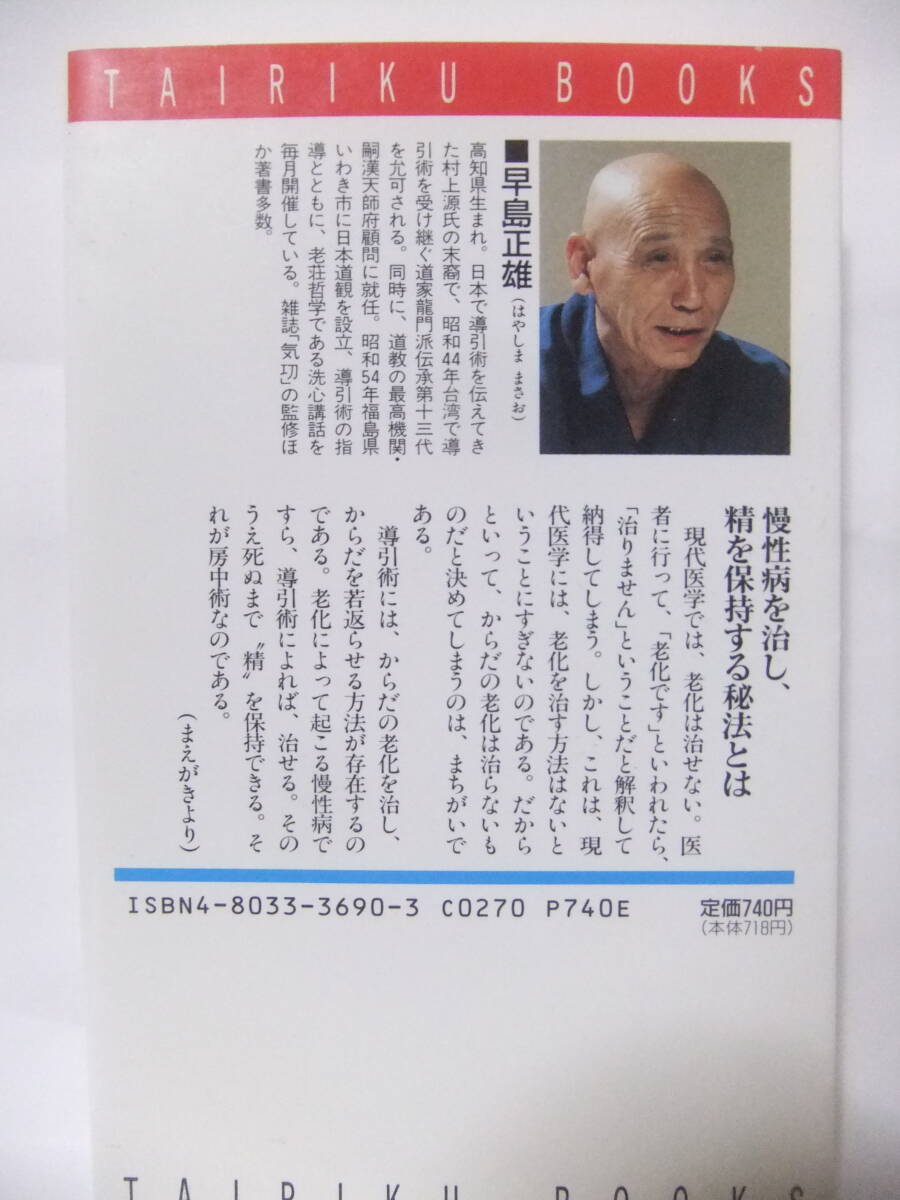 TAIRIKU BOOKS
■早島正雄
(はやしま まさお)
高知県生まれ。日本で導引術を伝えてき
た村上源氏の末裔で、昭和44年台湾で導
引術を受け継ぐ道家龍門派伝承第十三代
を允可される。同時に、道教の最高機関・
嗣漢天師府顧問に就任。昭和54年福島県
いわき市に日本道観を設立、導引術の指
導とともに、老荘哲学である洗心講話を
毎月開催している。雑誌「気功」の監修ほ
か著書多数。
慢性病を治し、
精を保持する秘法とは
現代医学では、老化は治せない。医
者に行って、「老化です」といわれたら、
「治りません」ということだと解釈して
納得してしまう。しかし、これは、現
代医学には、老化を治す方法はないと
いうことにすぎないのである。だから
といって、からだの老化は治らないも
のだと決めてしまうのは、まちがいで
ある。
導引術には、からだの老化を治し、
からだを若返らせる方法が存在するの
である。老化によって起こる慢性病で
すら、導引術によれば、治せる。その
うえ死ぬまで〝精〟を保持できる。そ
れが房中術なのである。
(まえがきより)
ISBN4-8033-3690-3 C0270 P740E
定価740円
(本体718円)
TAIRIKU BOOKS